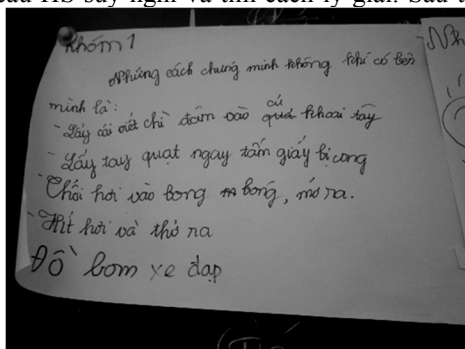 Nhóm 1
Những cách chứng minh không khí có bên
mình là:
- Lấy cái viết chì đâm vào quả củ khoai tây
- Lấy tay quạt ngay tấm giấy bị cong
- Thổi hơi vào bong bóng, mở ra.
- Hít hơi và thở ra
Đồ bơm xe đạp
Nh